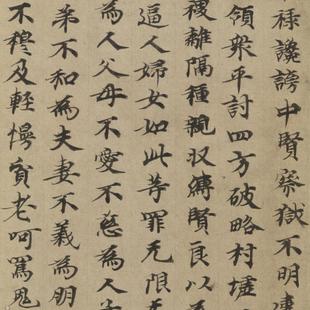 讒謗中賢察獄不明
領衆平討四方破略村墟
離隔種親収縛賢良以
逼人婦女如此等罪无限
為人父母不愛不慈為人
弟不和為夫妻不義為朋
不穆及輕慢貧老呵罵鬼